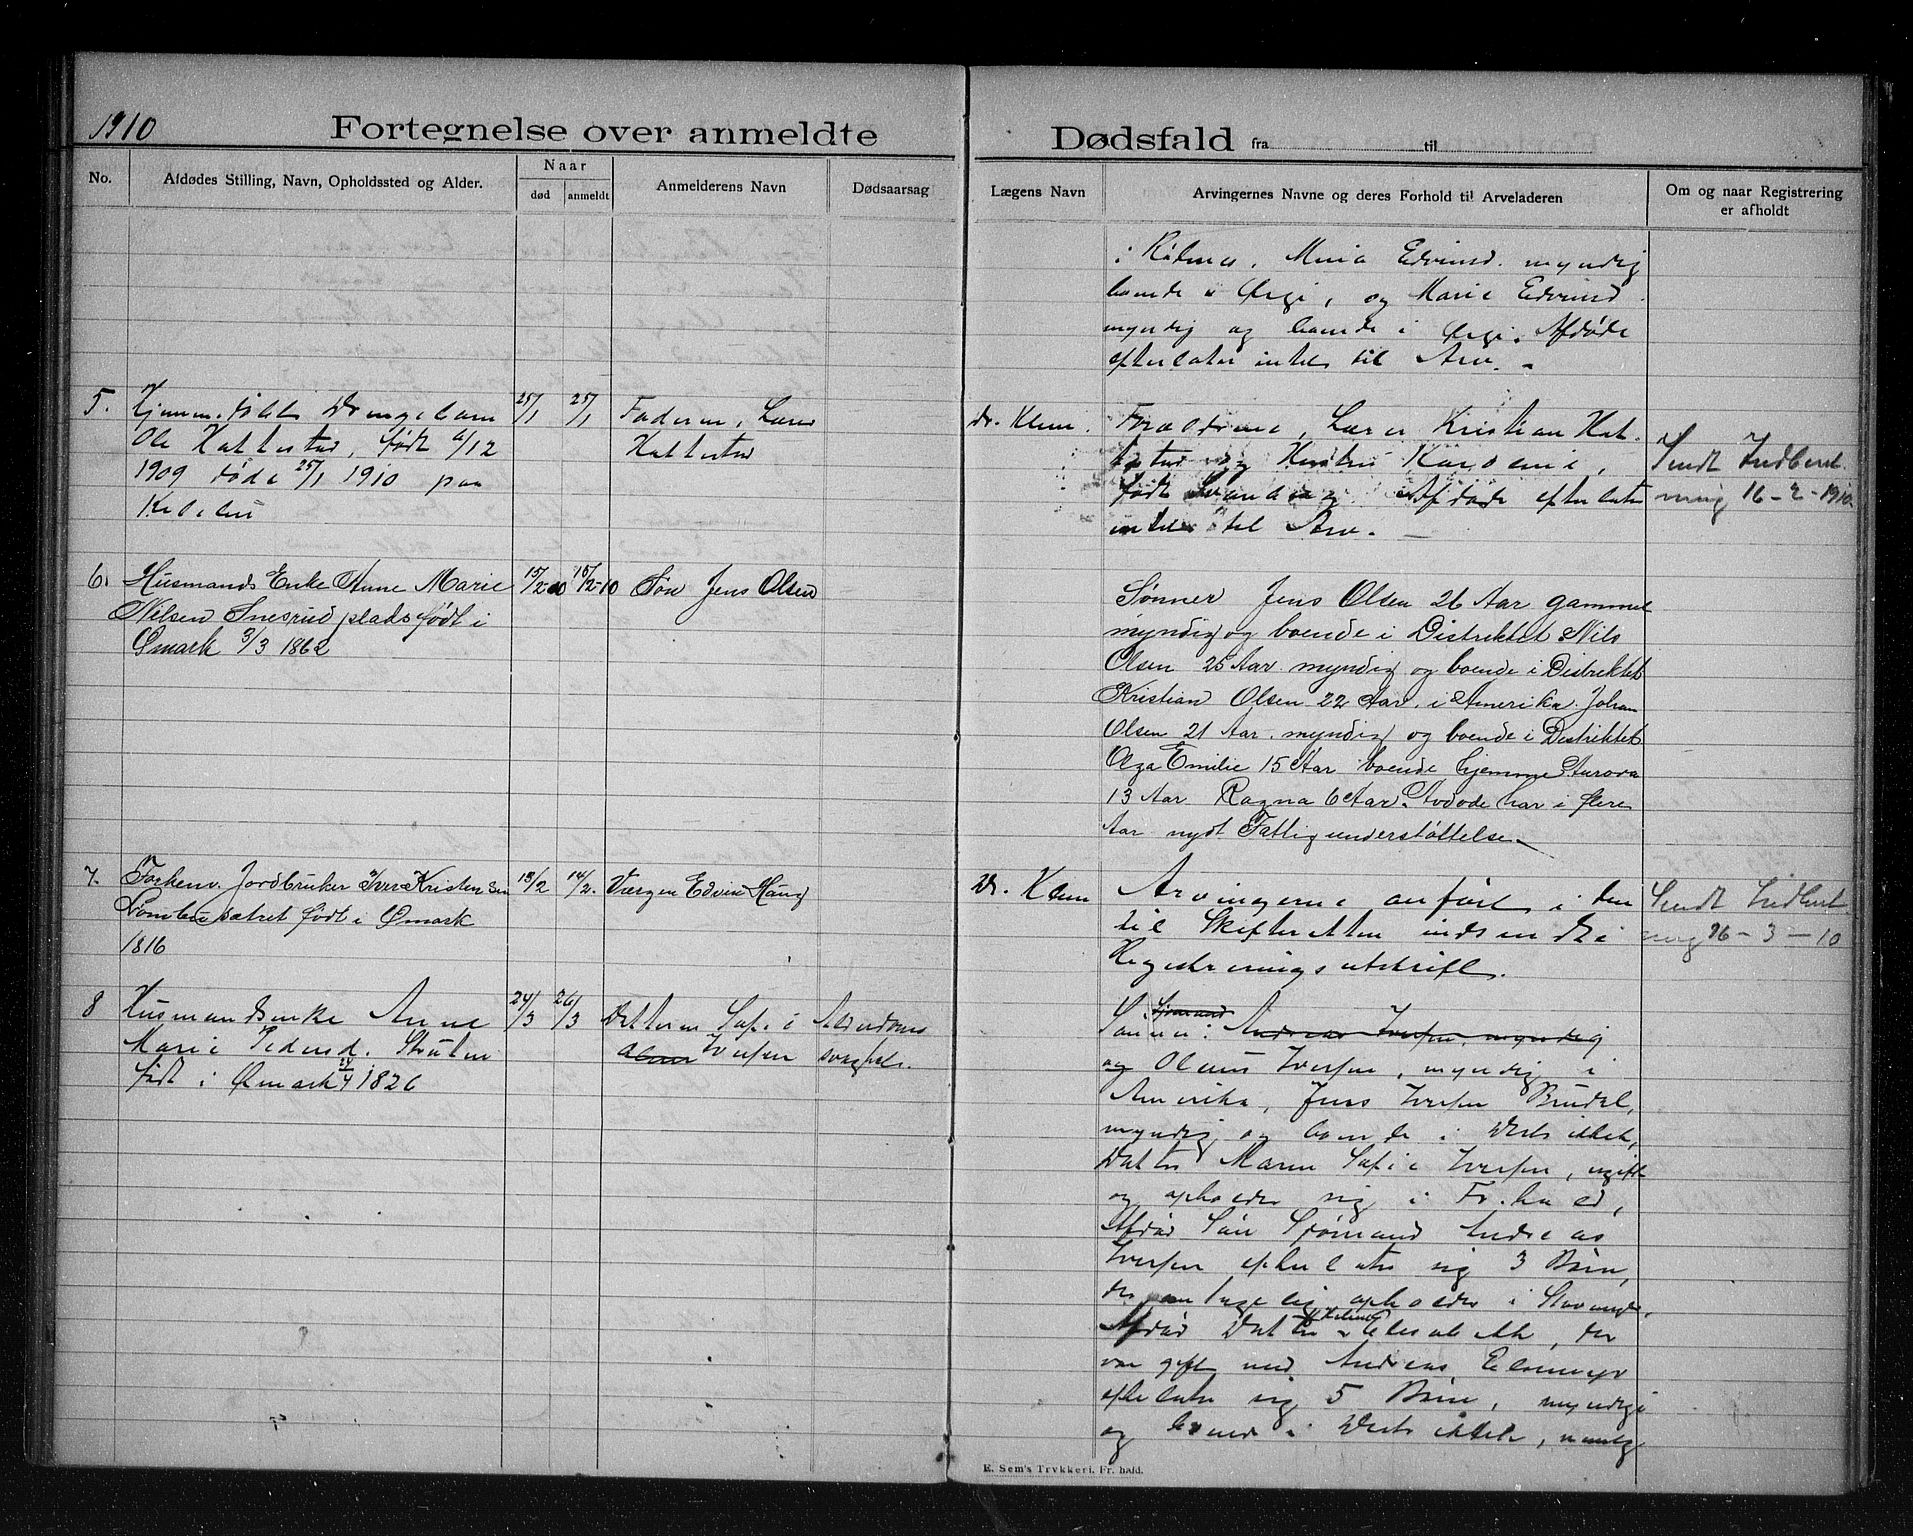 1910
Fortegnelse over anmeldte Dødsfald fra til
No.
Afdødes Stilling, Navn, Opholdssted og Alder.
Naar
død
anmeldt
Anmelderens Navn
Dødsaarsag
Lægens Navn
Arvingernes Navne og deres Forhold til Arveladeren
Om og naar Registrering
er afholdt
i Edvinsd. myndig
boende i Ørje, og Marie Edvinsd.
myndig og boende i Ørje. Afdøde
efterlater intet til Arv.
5. Drengebarn
Ole Hattestad, født 6/12
1909 døde 25/1 1910 paa
25/1
25/1
Faderen, Lærer
Hattestad
Dr. Klem.
Forældrene, Lærer Kristian Hat-
testad og Hustru
født Afdøde efterlater
intet til Arv.
Sendt Indberet
ning 16-2-1910
6. Husmands Enke Anne Marie
Nilsen Snesrud plads født i
Ømark 3/3 1862
15/2-10
15/2-10
Søn Jens Olsen
Sønner Jens Olsen 26 Aar gammel
myndig og boende i Distriktet Nils
Olsen 25 Aar myndig og boende i Distriktet
Kristian Olsen 22 Aar. i Amerika. Johan
Olsen 21 Aar. myndig og boende i Distriktet
Olga Emilie 15 Aar boende hjemme Aurora
13 Aar Ragna 6 Aar. Avdøde har i flere
Aar nydt Fattigunderstøttelse
7. Forhenv. Jordbruker Iver Kristensen
født i Ømark
1816
13/2
14/2.
Værgen Edvin Haug
Dr. Klem
Arvingerne anført i den
til Skifteretten indsendte
Registreringsutskrift.
Sendt Indberet
ning 26-3-10
8 Husmandsenke Anne
Marie Pedersd. Struten
født i Ømark 24/4 1826
24/3
26/3
Datteren Sofie
Iversen
Alderdoms
svaghet.
Sjømand
Sønner: Andreas Iversen, myndig
og Olaus Iversen, myndig i
Amerika, Jens Iversen
myndig og boende i Distriktet,
Datter Maren Sofie Iversen, ugift
og opholder sig i Fr.hald,
Afdød Søn Sjømand Andreas
Iversen efterlater sig 3 Børn,
der antagelig opholder i
Afdød Datter Elisabeth, der
var gift med Andreas
efterlater sig 5 Børn, myndige
og boende i Distriktet, nemlig
E. Sem's Trykkeri. Fr.hald.